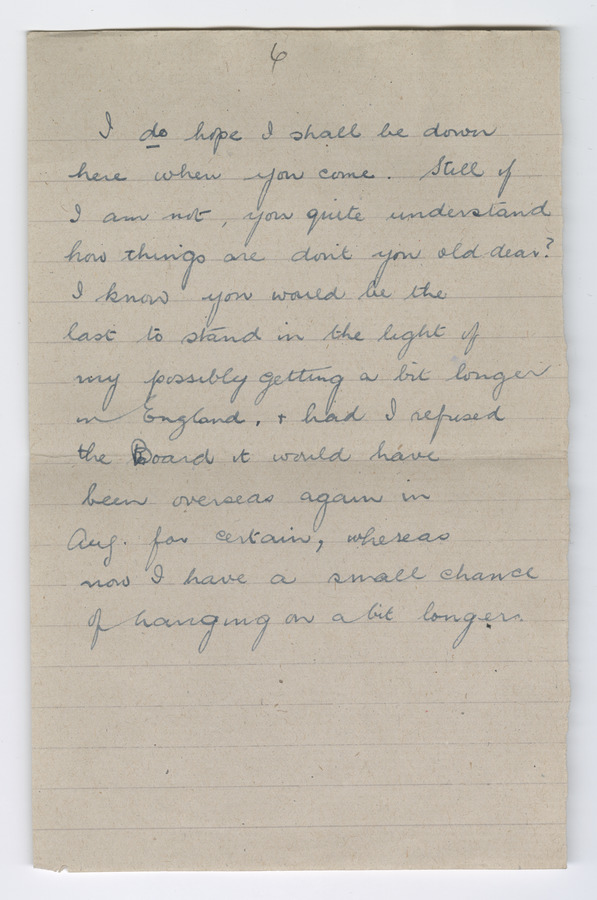 6
I do hope I shall be down
here when you come. Still if
I am not, you quite understand
how things are don't you old dear?
I know you would be the
last to stand in the light of
my possibly getting a bit longer
in England, + had I refused
the Board it would have
been overseas again in
Aug. for certain, whereas
now I have a small chance
of hanging on a bit longer.